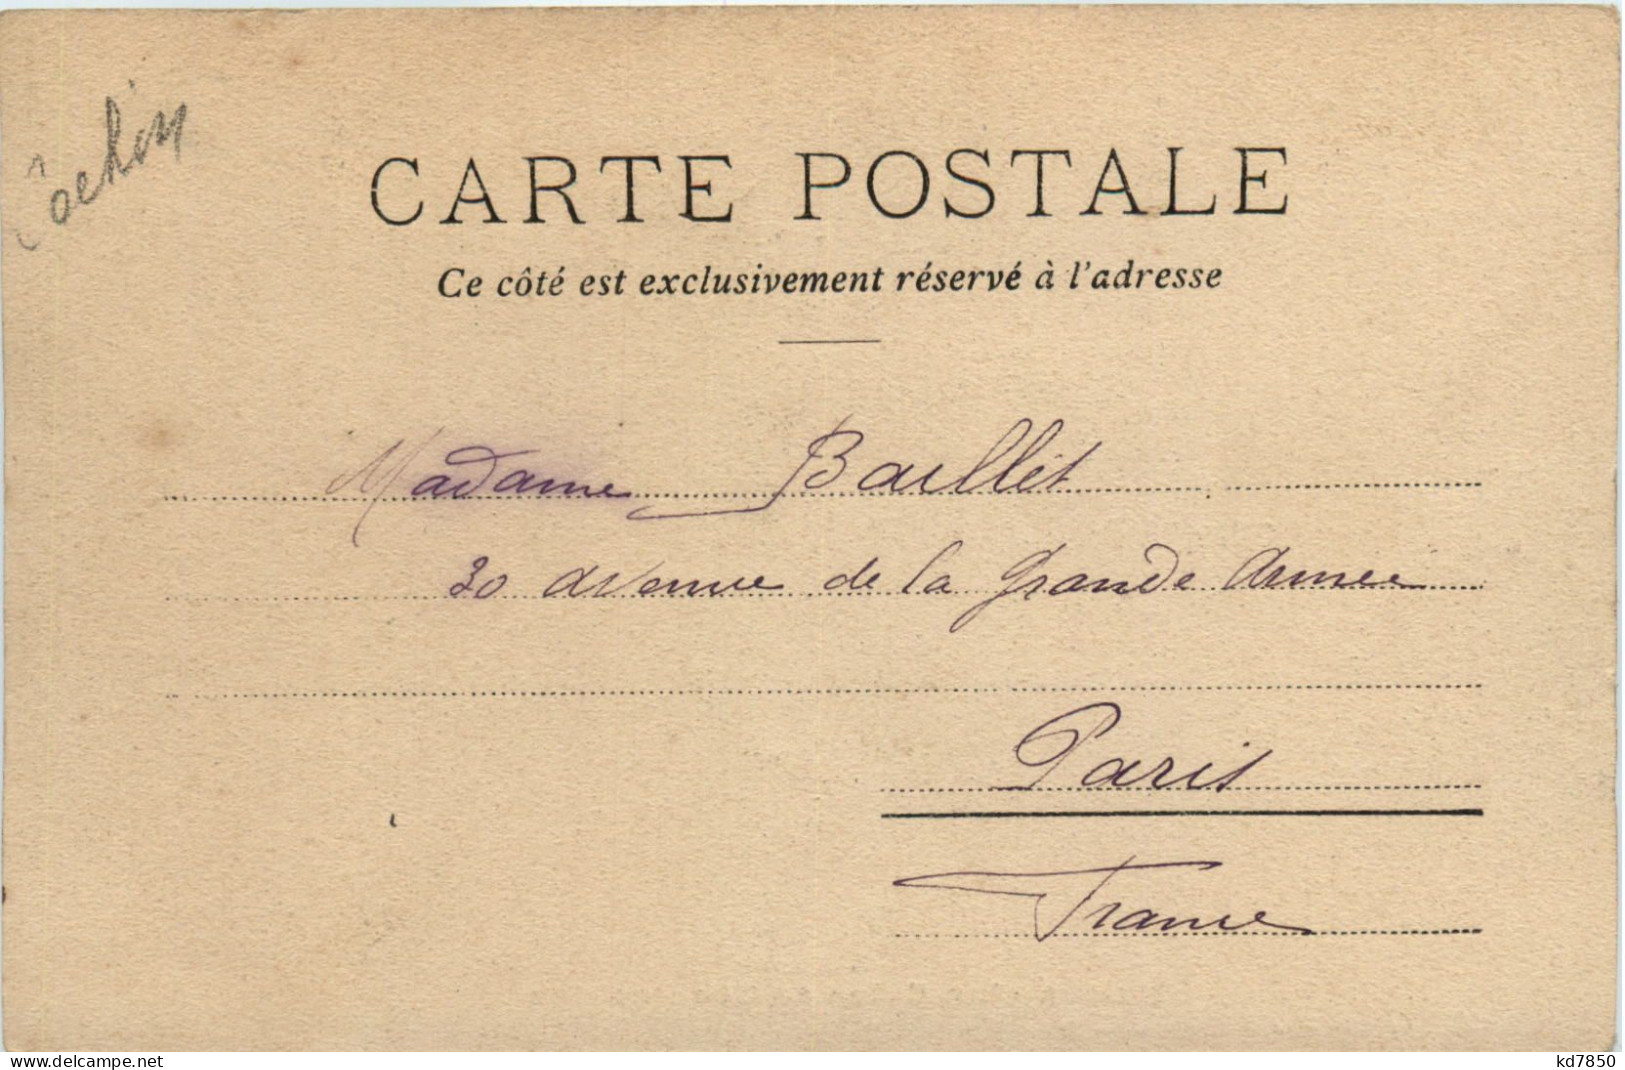 Cochin
CARTE POSTALE
Ce côté est exclusivement réservé à l'adresse
Madame Baillet
30 avenue de la Grande Armee
Paris
France
www.delcampe.net
kd7850